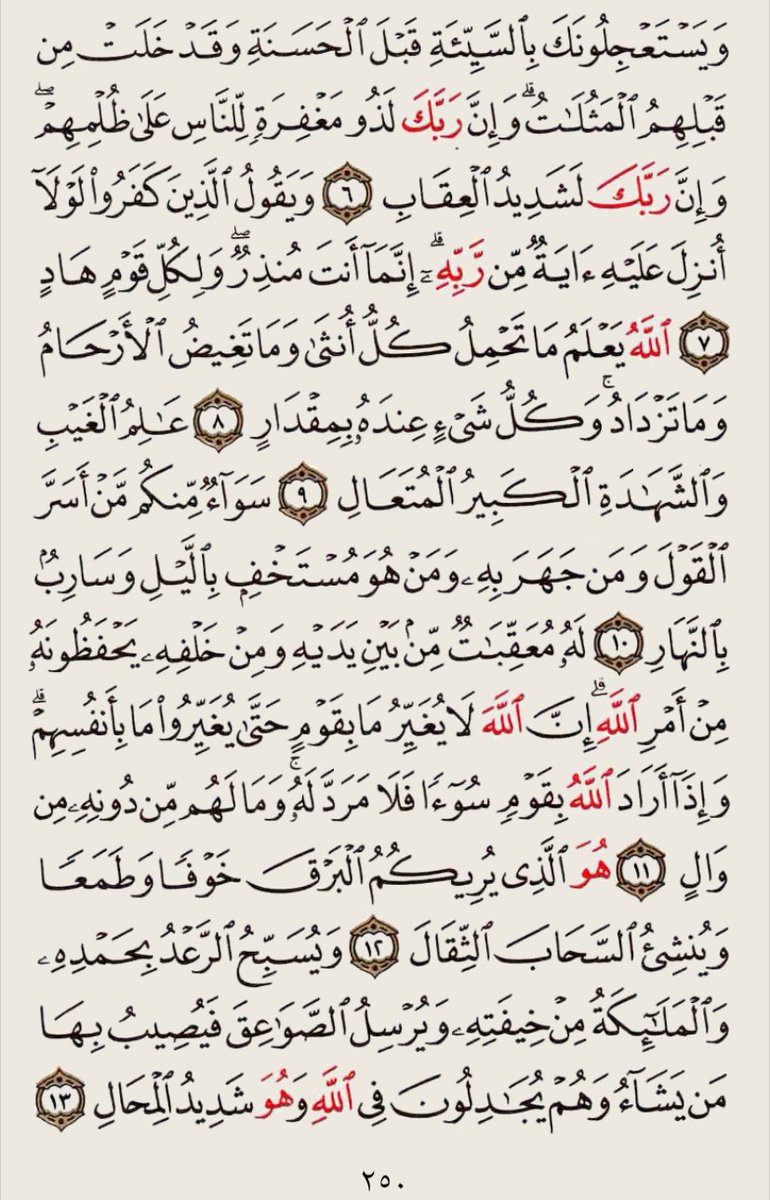 وَيَسْتَعْجِلُونَكَ بِٱلسَّيِّئَةِ قَبْلَ ٱلْحَسَنَةِ وَقَدْ خَلَتْ مِن
قَبْلِهِمُ ٱلْمَثُلَٰتُ ۗ وَإِنَّ رَبَّكَ لَذُو مَغْفِرَةٍ لِّلنَّاسِ عَلَىٰ ظُلْمِهِمْ ۖ
وَإِنَّ رَبَّكَ لَشَدِيدُ ٱلْعِقَابِ ٦ وَيَقُولُ ٱلَّذِينَ كَفَرُوا۟ لَوْلَآ
أُنزِلَ عَلَيْهِ ءَايَةٌ مِّن رَّبِّهِۦٓ ۗ إِنَّمَآ أَنتَ مُنذِرٌ ۖ وَلِكُلِّ قَوْمٍ هَادٍ
٧ ٱللَّهُ يَعْلَمُ مَا تَحْمِلُ كُلُّ أُنثَىٰ وَمَا تَغِيضُ ٱلْأَرْحَامُ
وَمَا تَزْدَادُ ۚ وَكُلُّ شَىْءٍ عِندَهُۥ بِمِقْدَارٍ ٨ عَٰلِمُ ٱلْغَيْبِ
وَٱلشَّهَٰدَةِ ٱلْكَبِيرُ ٱلْمُتَعَالِ ٩ سَوَآءٌ مِّنكُم مَّنْ أَسَرَّ
ٱلْقَوْلَ وَمَن جَهَرَ بِهِۦ وَمَنْ هُوَ مُسْتَخْفٍۭ بِٱلَّيْلِ وَسَارِبٌۢ
بِٱلنَّهَارِ ١٠ لَهُۥ مُعَقِّبَٰتٌ مِّنۢ بَيْنِ يَدَيْهِ وَمِنْ خَلْفِهِۦ يَحْفَظُونَهُۥ
مِنْ أَمْرِ ٱللَّهِ ۗ إِنَّ ٱللَّهَ لَا يُغَيِّرُ مَا بِقَوْمٍ حَتَّىٰ يُغَيِّرُوا۟ مَا بِأَنفُسِهِمْ ۗ
وَإِذَآ أَرَادَ ٱللَّهُ بِقَوْمٍ سُوٓءًا فَلَا مَرَدَّ لَهُۥ ۚ وَمَا لَهُم مِّن دُونِهِۦ مِن
وَالٍ ١١ هُوَ ٱلَّذِى يُرِيكُمُ ٱلْبَرْقَ خَوْفًا وَطَمَعًا
وَيُنشِئُ ٱلسَّحَابَ ٱلثِّقَالَ ١٢ وَيُسَبِّحُ ٱلرَّعْدُ بِحَمْدِهِۦ
وَٱلْمَلَٰٓئِكَةُ مِنْ خِيفَتِهِۦ وَيُرْسِلُ ٱلصَّوَٰعِقَ فَيُصِيبُ بِهَا
مَن يَشَآءُ وَهُمْ يُجَٰدِلُونَ فِى ٱللَّهِ وَهُوَ شَدِيدُ ٱلْمِحَالِ ١٣
٢٥٠